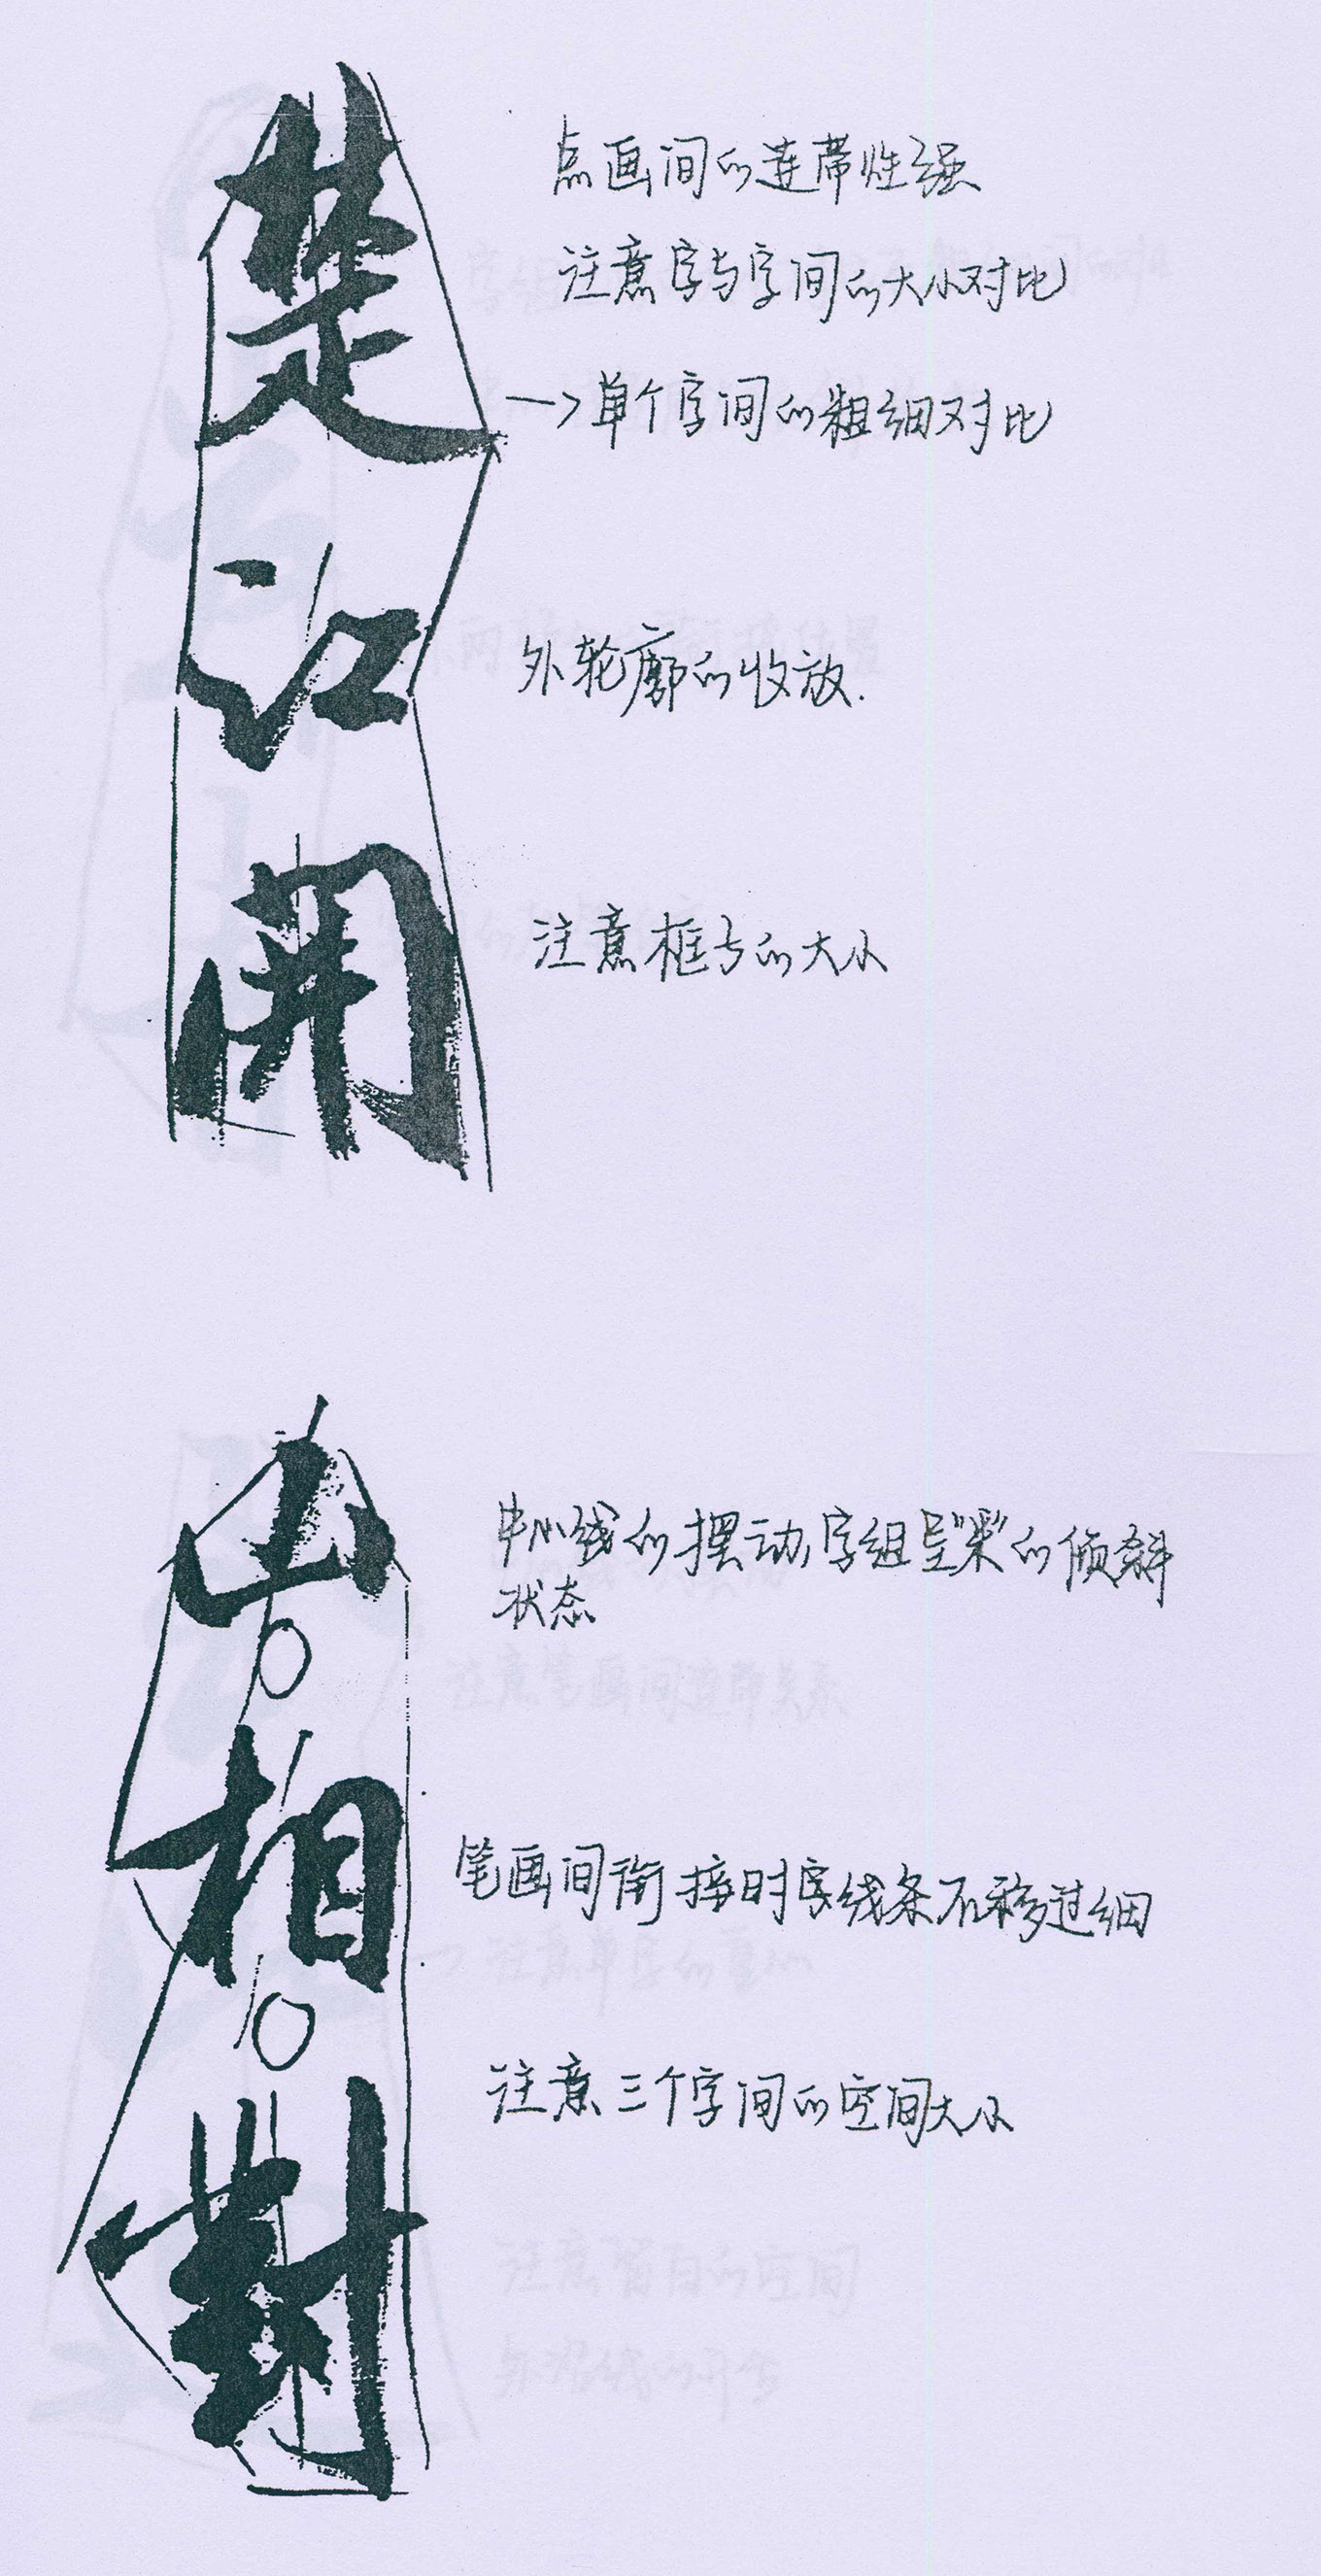 楚
江
開
点画间的连带性强
注意字与字间的大小对比
→单个字间的粗细对比
外轮廓的收放.
注意框与的大小
山
相
對
中心线的摆动,字组呈"梁"的倾斜
状态
笔画间衔接时字线条不移过细
注意三个字间的空间大小